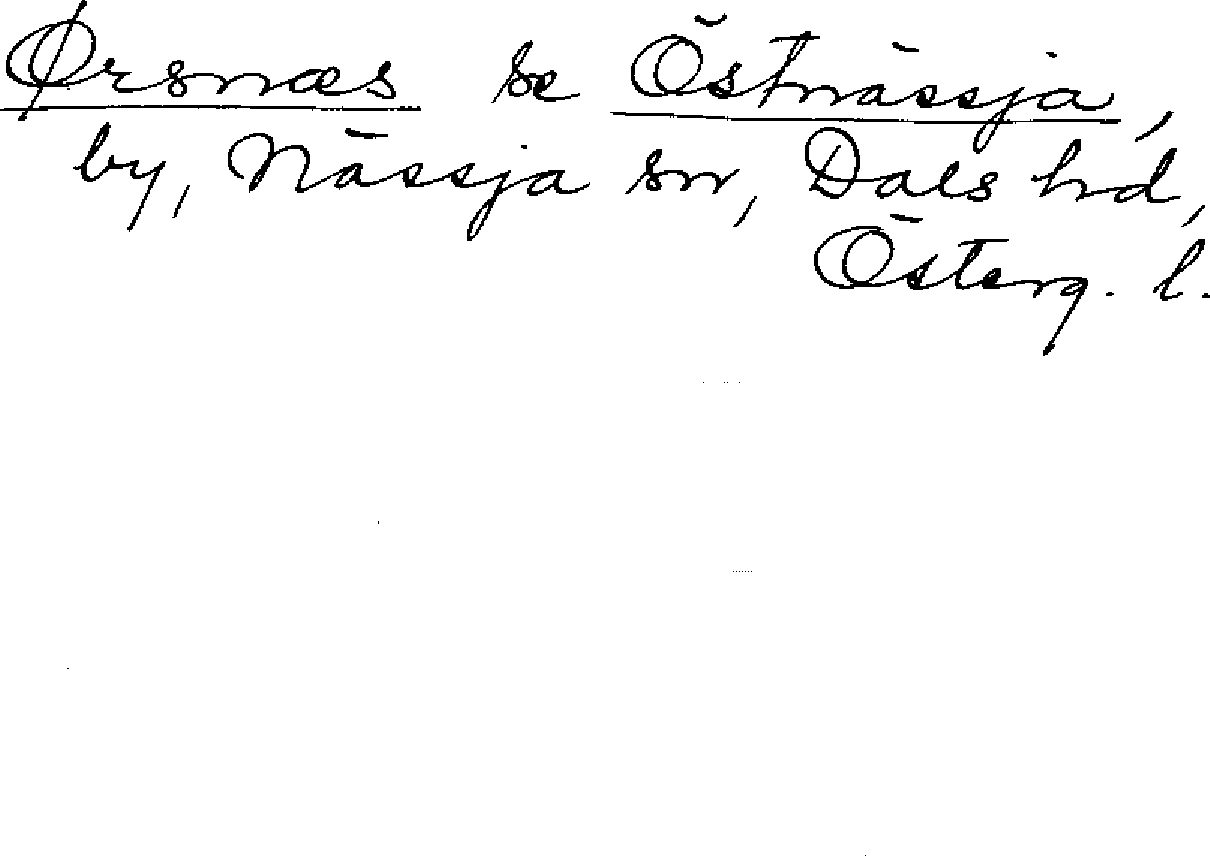 Ørsnæs se Östnässja,
by, Nässja sn, Dals hd,
Österg. l.